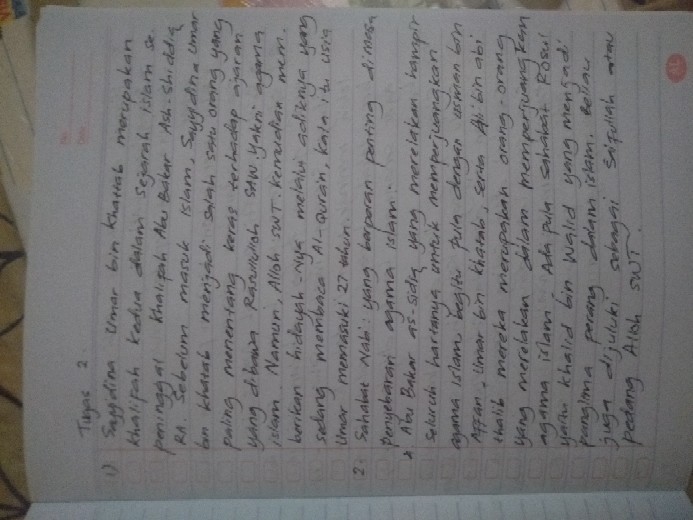 Tugas 2
1) Sayyidina Umar bin Khattab merupakan
khalifah kedua dalam sejarah islam se.
peninggal Khalifah Abu Bakar Ash-Shiddiq
RA. Sebelum masuk Islam, Sayyidina Umar
bin khatab menjadi salah satu orang yang
paling menentang keras terhadap ajaran
yang dibawa Rasulullah SAW yakni agama
islam. Namun, Allah SWT. kemudian mem.
berikan hidayah-Nya melalui adiknya yang
sedang membaca Al-Quran, kala itu usia
Umar memasuki 27 tahun.
2. Sahabat Nabi yang berperan penting dimasa
Penyebaran agama islam:
* Abu Bakar as-sidiq yang merelakan hampir
Seluruh hartanya untuk memperjuangakan
agama islam, begitu pula dengan usman bin
Affan, Umar bin khatab, serta Ali bin abi
thalib mereka merupakan orang-orang
yang merelakan dalam memperjuangkan
agama islam. Ada pula sahabat Rosul
yaitu khalid bin walid yang menjadi
panglima perang dalam islam. Beliau
juga dijuluki sebagai Saifullah atau
pedang Allah SWT.